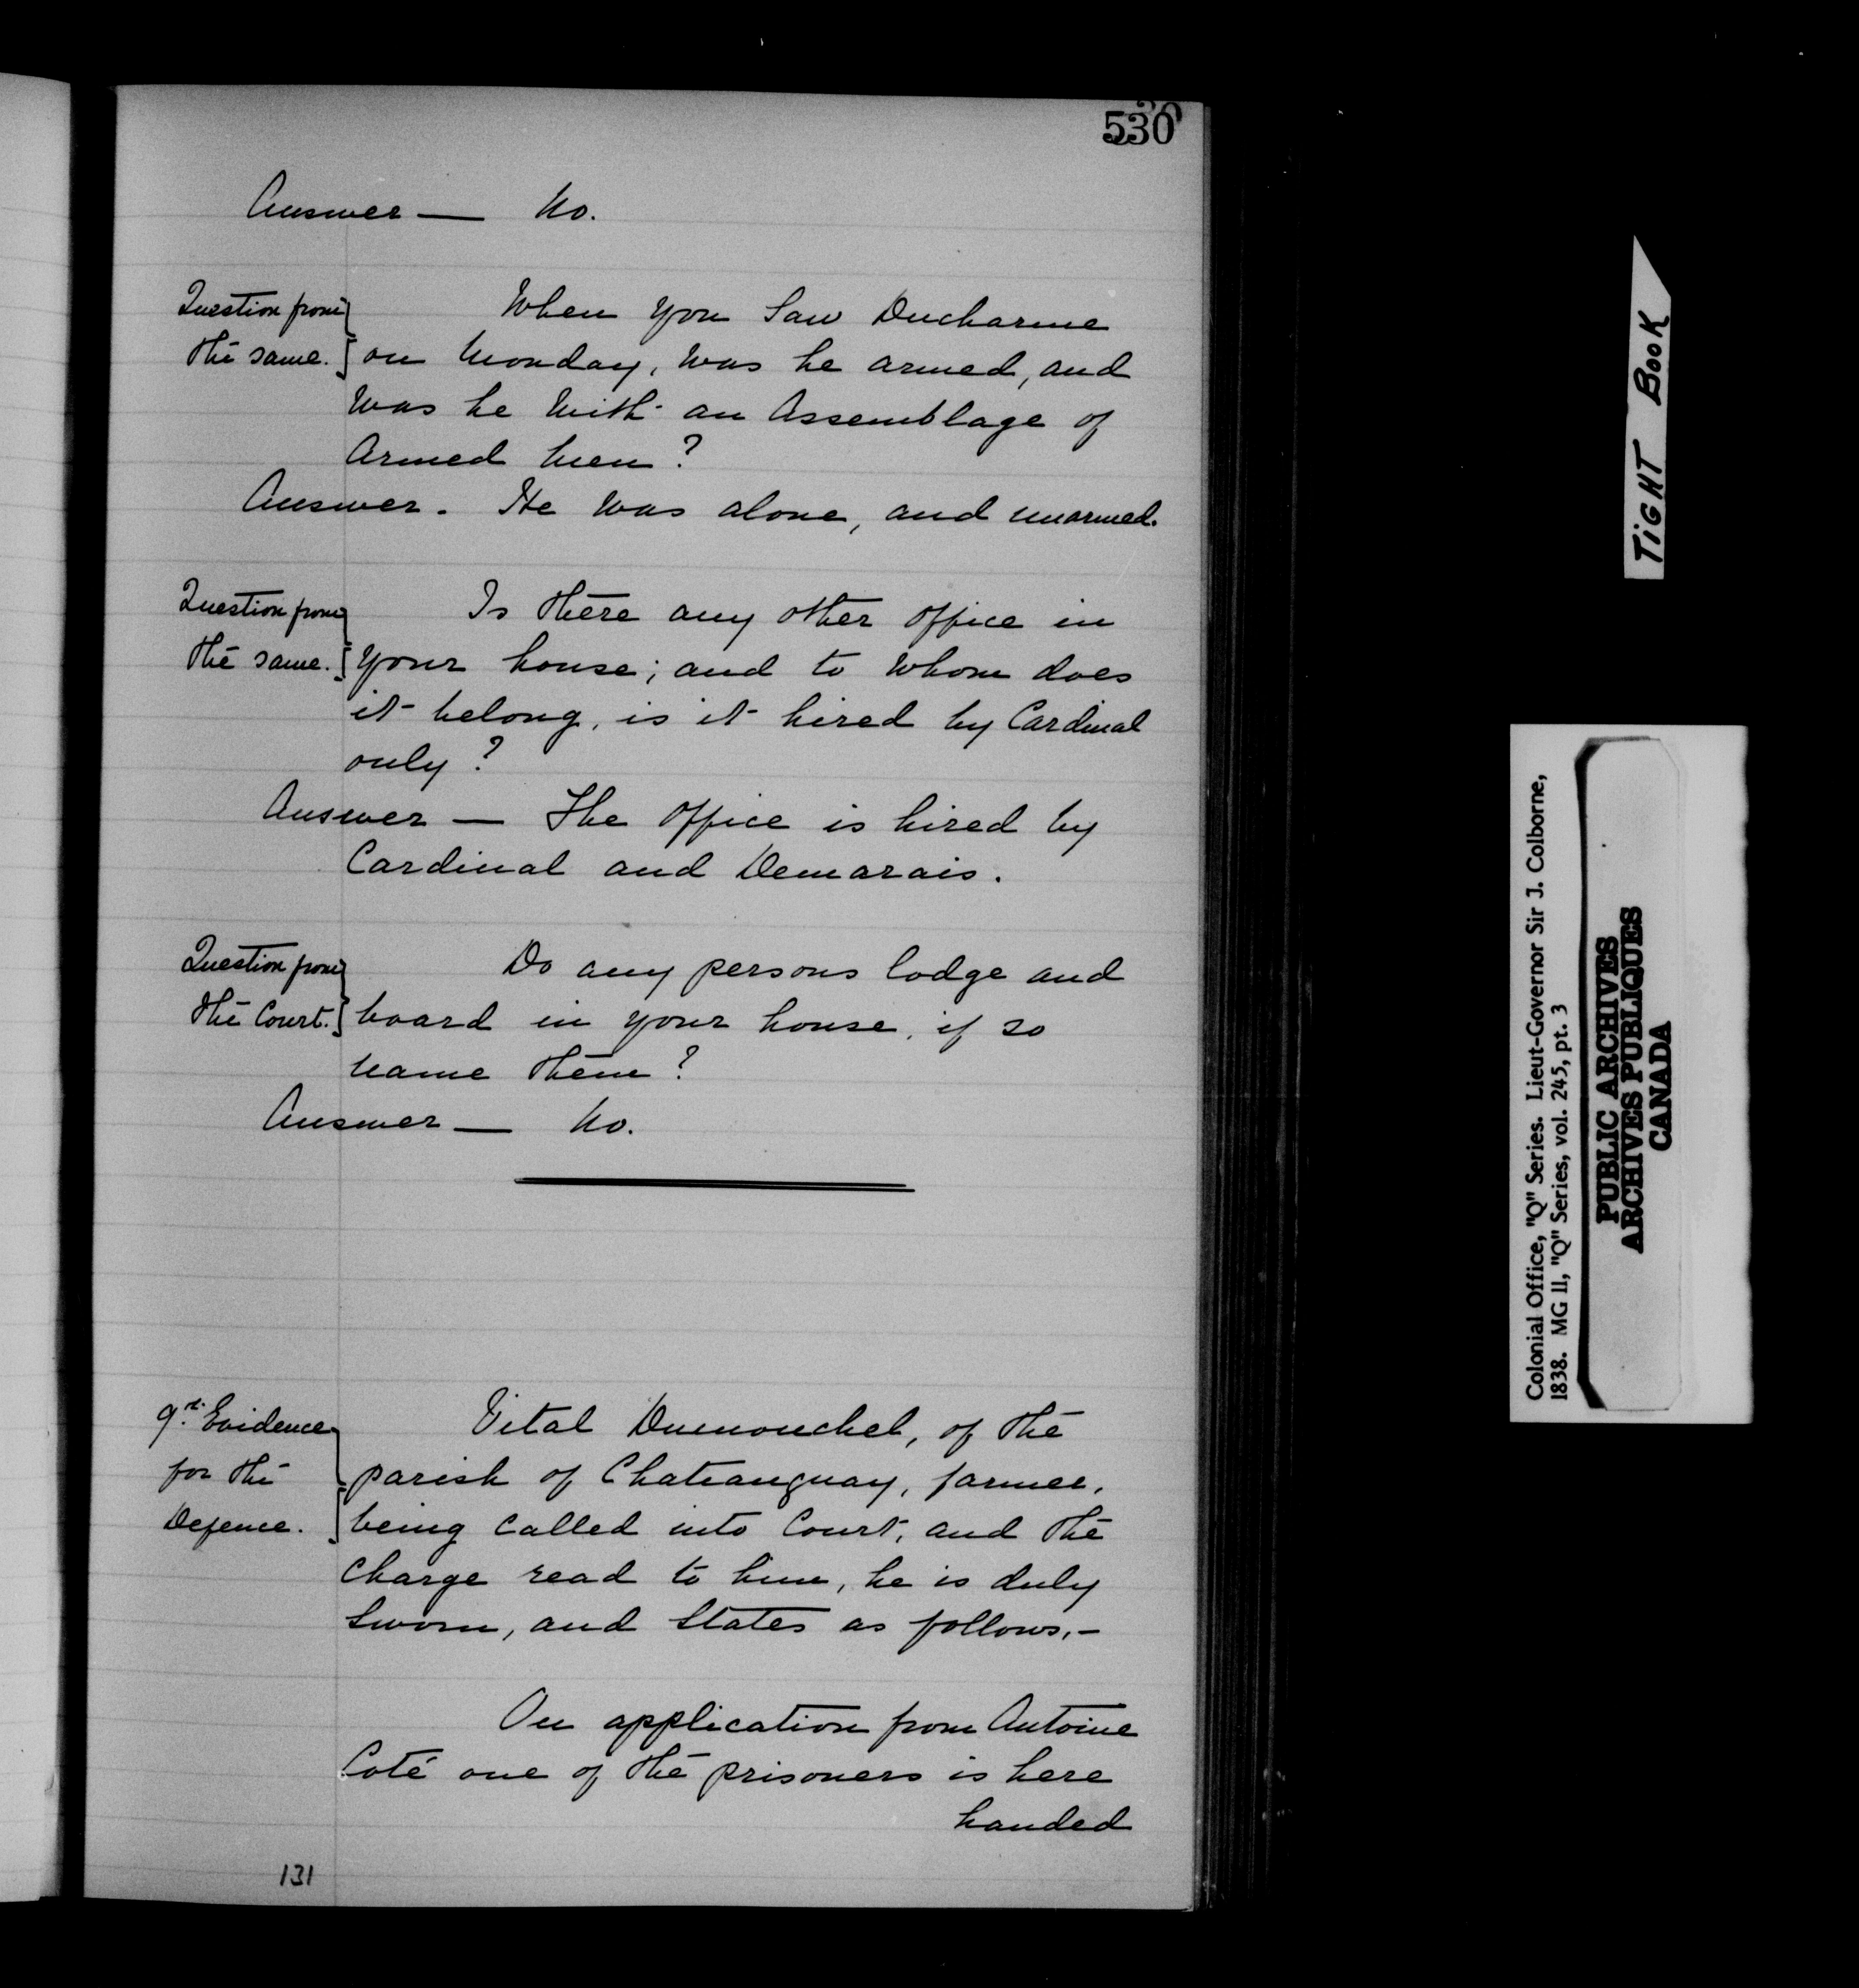 530
Answer — No.
Question from
the same.
When you Saw Ducharme
on Monday, was he armed, and
was he with an Assemblage of
Armed men?
Answer. He was alone, and unarmed.
Question from
the same.
Is there any other office in
your house; and to whom does
it belong, is it hired by Cardinal
only?
Answer — The office is hired by
Cardinal and Demarais.
Question from
the Court.
Do any persons lodge and
board in your house, if so
name them?
Answer — No.
9th Evidence
for the
Defence.
Vital Dumouchel, of the
parish of Chateauguay, farmer,
being called into Court, and the
Charge read to him, he is duly
Sworn, and States as follows,—
On application from Antoine
Coté one of the prisoners is here
handed
131
TIGHT BOOK
Colonial Office, "Q" Series. Lieut-Governor Sir J. Colborne,
1838. MG 11, "Q" Series, vol. 245, pt. 3
PUBLIC ARCHIVES
ARCHIVES PUBLIQUES
CANADA